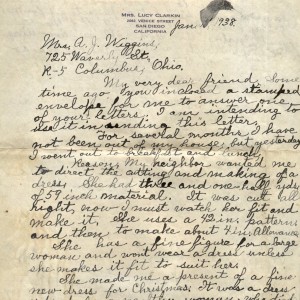 MRS. LUCY CLARKIN
VENICE STREET
SAN DIEGO
CALIFORNIA
Jan. 1938.
Mrs. A. J. Wiggins,
725 Waverly St,
R-5 Columbus, Ohio.
My very dear friend some
time ago you inclosed a stamped
envelope for me to answer one
of your letters. I am intending to
use it in sending this letter.
For several months I have
not been out of my house, but yesterday
I went out to breakfast and lunch.
Reasons My neighbor wanted me
to direct the cutting and making of a
dress. She had three and one-half yds
of 54 inch material. It was cut all
right, now I must watch her fit and
make it. She uses a 42 in. pattern
and then to make about 4 in. Allowance
She has a fine figure for a large
woman and wont wear a dress unless
she makes it fit to suit hers
She made me a present of a fine
new dress for Christmas. It was a dress